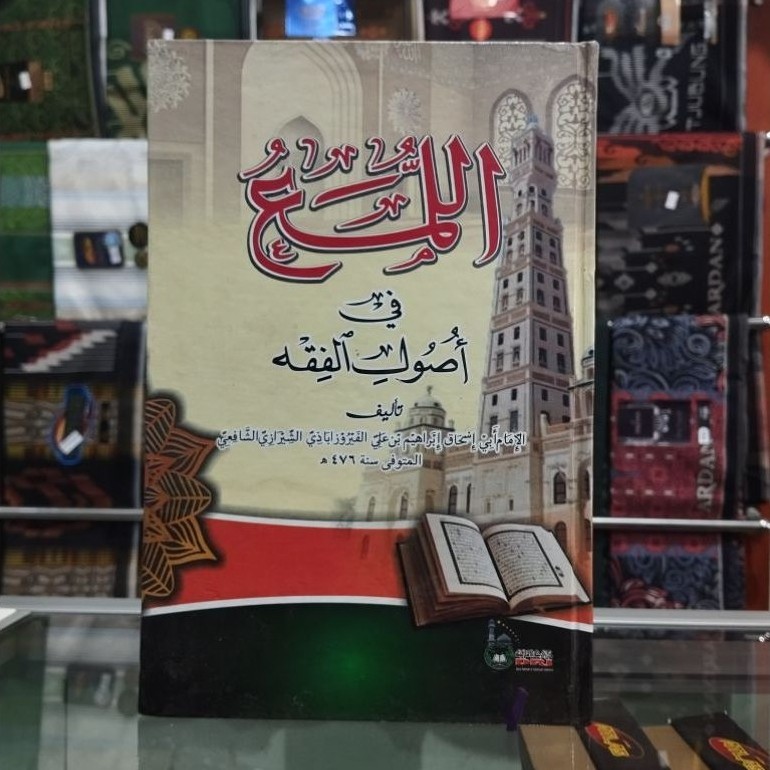 اللُّمَعُ
في
أُصُولِ الفِقْه
تأليف
الإمَام أَبِيْ إِسْحَاق إِبْرَاهِيْم بْن عَلِيّ الفَيْرُوْزآبَاذِيّ الشِّيْرَازِيّ الشَّافِعِيّ
المتوفى سنة ٤٧٦ ھ
TJUBUNG
ARDAN
ARDAN